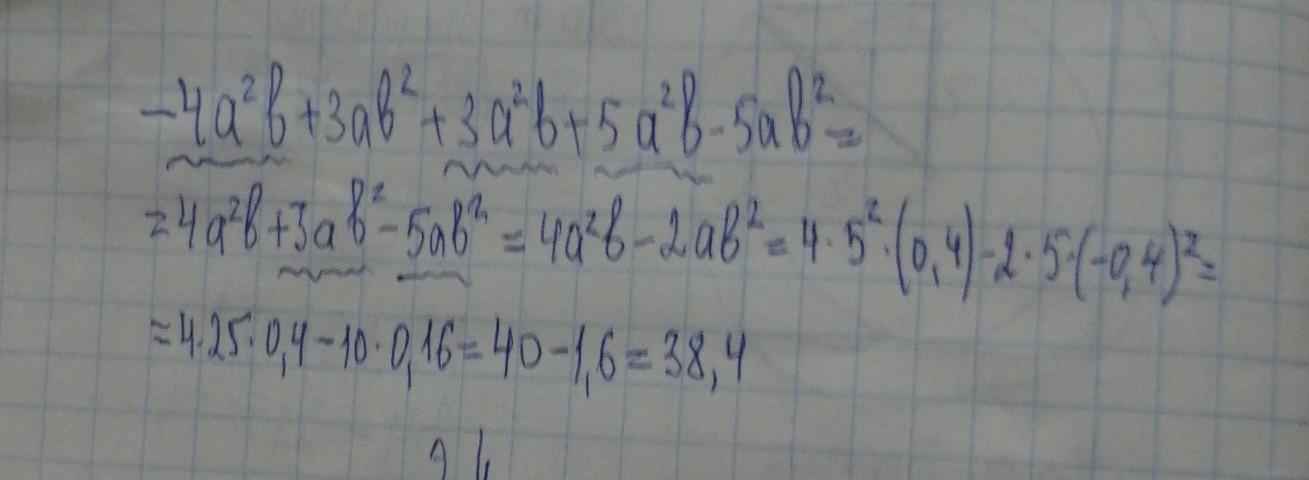 -4a²b+3ab²+3a²b+5a²b-5ab²=
=4a²b+3ab²-5ab²=4a²b-2ab²=4·5²·(0,4)-2·5·(-0,4)²=
=4·25·0,4-10·0,16=40-1,6=38,4